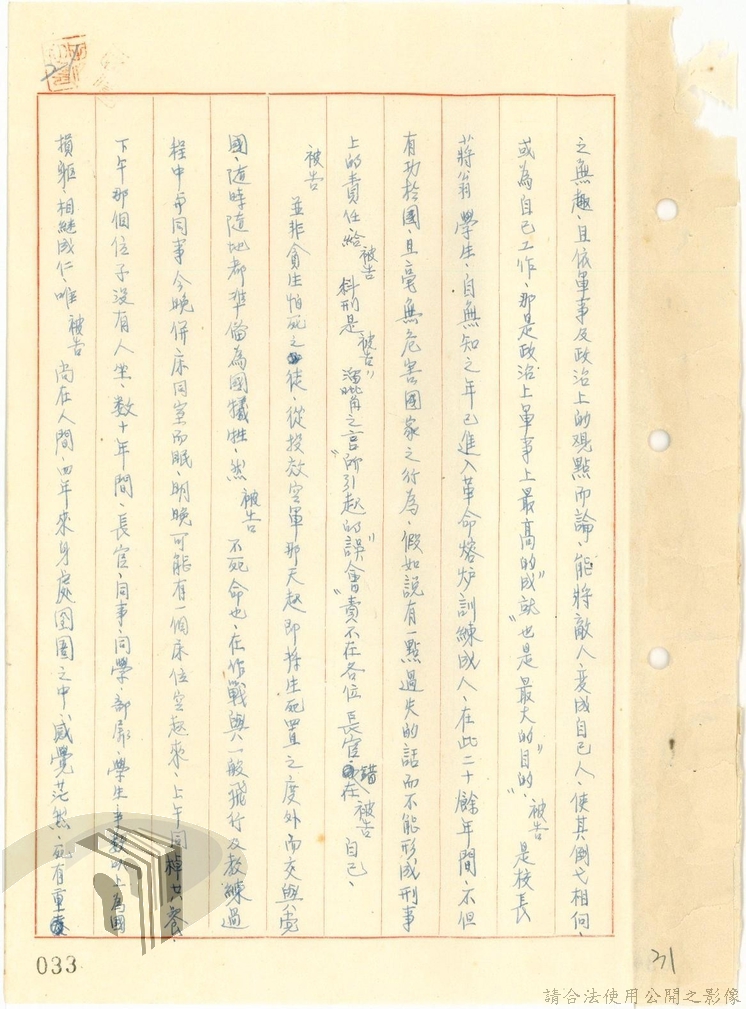 之無趣、且依軍事及政治上的观點而論、能將敵人变成自己人、使其倒戈相向、
或為自己工作、那是政治上軍事上最高的成就“也是最大的目的”、被告是校長
蔣翁學生、自無知之年已進入革命熔炉訓練成人、在此二十餘年間、不但
有功於國、且毫無危害國家之行為、假如說有一點過失的話而不能形成刑事
上的責任給被告科刑是被告“溜嘴角之言所引起的”誤會“責不在各位長官、錯在被告自己、
被告並非貪生怕死之徒、從投效空軍那天起即將生死置之度外而交與黨
國、隨時隨地都準備為國犧牲、然被告不死命也、在作戰與一般飛行及教練過
程中每同事今晚併床同室而眠、明晚可能有一個床位空起來、上午同棹共餐、
下午那個位子沒有人坐、数十年間、長官、同事、同學、部屬、學生半数以上為國
損軀、相継成仁、唯被告尚在人間、四年來身處囹圄之中、感覺茫然、死有重
033
31
請合法使用公開之影像